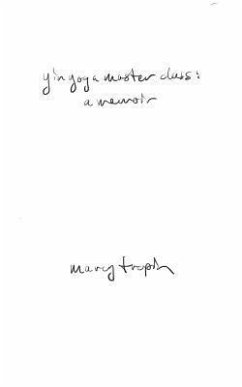 yin yoga master class:
a memoir
mary